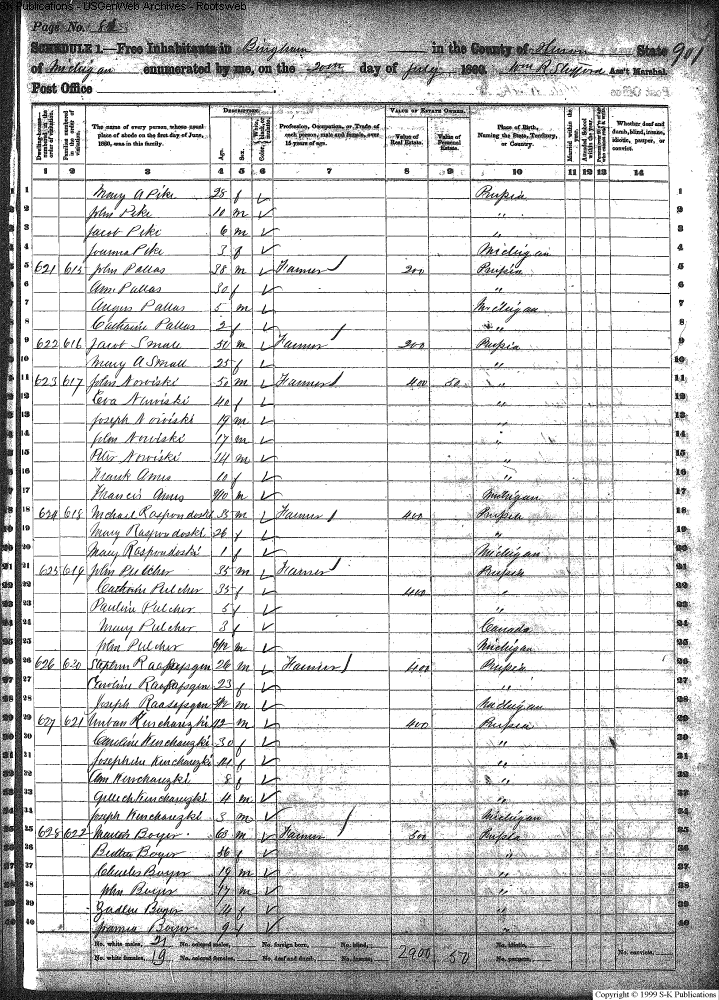 S-K Publications - USGenWeb Archives - Rootsweb
Page No. 81
SCHEDULE 1.—Free Inhabitants in Bingham in the County of Huron State 901
of Michigan enumerated by me, on the 20th day of July 1860. Wm R. Ass't Marshal.
Post Office
DESCRIPTION. VALUE OF ESTATE OWNED.
Dwelling-houses numbered in the order of visitation. Families numbered in the order of visitation. The name of every person whose usual place of abode on the first day of June, 1860, was in this family. Age. Sex. Color, White, black, or mulatto. Profession, Occupation, or Trade of each person, male and female, over 15 years of age. Value of Real Estate. Value of Personal Estate. Place of Birth, Naming the State, Territory, or Country. Married within the year. Attended School within the year. Whether deaf and dumb, blind, insane, idiotic, pauper, or convict.
1 2 3 4 5 6 7 8 9 10 11 12 13 14
1 Mary A Pike 28 f ✓ Prussia 1
2 John Pike 10 m ✓ " 2
3 Jacob Pike 6 m ✓ " 3
4 Pike 3 f ✓ Michigan 4
5 621 615 John Pallas 38 m ✓ Farmer 200 Prussia 5
6 Ann Pallas 30 f ✓ " 6
7 August Pallas 5 m ✓ Michigan 7
8 Catharine Pallas 2 f ✓ " 8
9 622 616 Jacob Small 50 m ✓ Farmer 200 Prussia 9
10 Mary A Small 25 f ✓ " 10
11 623 617 John Nowiski 50 m ✓ Farmer 400 50 " 11
12 Eva Nowiski 40 f ✓ " 12
13 Joseph Nowiski 19 m ✓ " 13
14 John Nowiski 17 m ✓ " 14
15 Peter Nowiski 14 m ✓ " 15
16 Frank Ames 10 f ✓ " 16
17 Francis Ames m ✓ Michigan 17
18 624 618 Michael Raspondoski 35 m ✓ Farmer 400 Prussia 18
19 Mary Raspondoski 26 f ✓ " 19
20 Mary Raspondoski 1 f ✓ Michigan 20
21 625 619 John Pulcher 35 m ✓ Farmer Prussia 21
22 Catharine Pulcher 35 f ✓ 400 " 22
23 Pauline Pulcher 5 f ✓ " 23
24 Mary Pulcher 3 f ✓ Canada 24
25 John Pulcher m ✓ Michigan 25
26 626 620 Stephen 26 m ✓ Farmer 400 Prussia 26
27 Caroline 23 f ✓ " 27
28 Joseph m ✓ Michigan 28
29 627 621 Urban Kinchanzki 42 m ✓ 400 Prussia 29
30 Caroline Kinchanzki 30 f ✓ " 30
31 Josephine Kinchanzki f ✓ " 31
32 Ann Kinchanzki 8 f ✓ " 32
33 Kinchanzki 4 m ✓ " 33
34 Joseph Kinchanzki 3 m ✓ Michigan 34
35 628 622 Boyer 63 m ✓ Farmer 500 Prussia 35
36 Boyer 56 f ✓ " 36
37 Charles Boyer 19 m ✓ " 37
38 John Boyer 17 m ✓ " 38
39 Boyer 14 f ✓ " 39
40 Boyer 9 f ✓ " 40
No. white males, 21 No. colored males, No. foreign born, No. blind, 2900 50 No. idiotic,
No. white females, 19 No. colored females, No. deaf and dumb, No. insane, No. paupers, No. convicts,
Copyright © 1999 S-K Publications